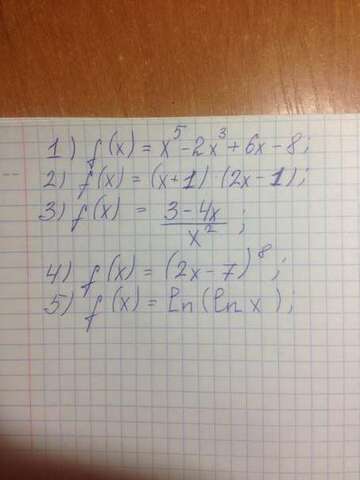 1) f(x) = x⁵ - 2x³ + 6x - 8;
2) f(x) = (x+1) (2x-1);
3) f(x) = (3-4x)/x²;
4) f(x) = (2x-7)⁸;
5) f(x) = ln(ln x);